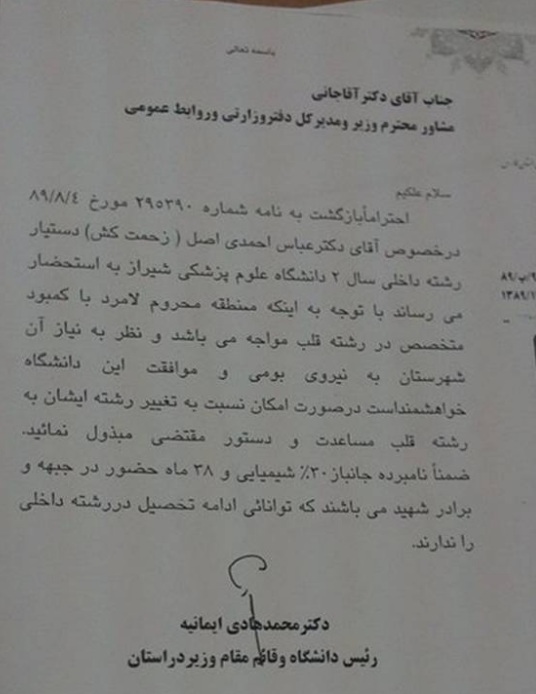 باسمه تعالی
جناب آقای دکتر آقاجانی
مشاور محترم وزیر ومدیرکل دفتروزارتی وروابط عمومی
سلام علکیم
احتراماًبازگشت به نامه شماره ۲۹۵۳۹۰ مورخ ۸۹/۸/۴
درخصوص آقای دکترعباس احمدی اصل ( زحمت کش) دستیار
رشته داخلی سال ۲ دانشگاه علوم پزشکی شیراز به استحضار
می رساند با توجه به اینکه منطقه محروم لامرد با کمبود
متخصص در رشته قلب مواجه می باشد و نظر به نیاز آن
شهرستان به نیروی بومی و موافقت این دانشگاه
خواهشمنداست درصورت امکان نسبت به تغییر رشته ایشان به
رشته قلب مساعدت و دستور مقتضی مبذول نمائید.
ضمناً نامبرده جانباز۳۰٪ شیمیایی و ۳۸ ماه حضور در جبهه و
برادر شهید می باشند که توانائی ادامه تخصیل دررشته داخلی
را ندارند.
دکترمحمدهادی ایمانیه
رئیس دانشگاه وقائم مقام وزیردراستان